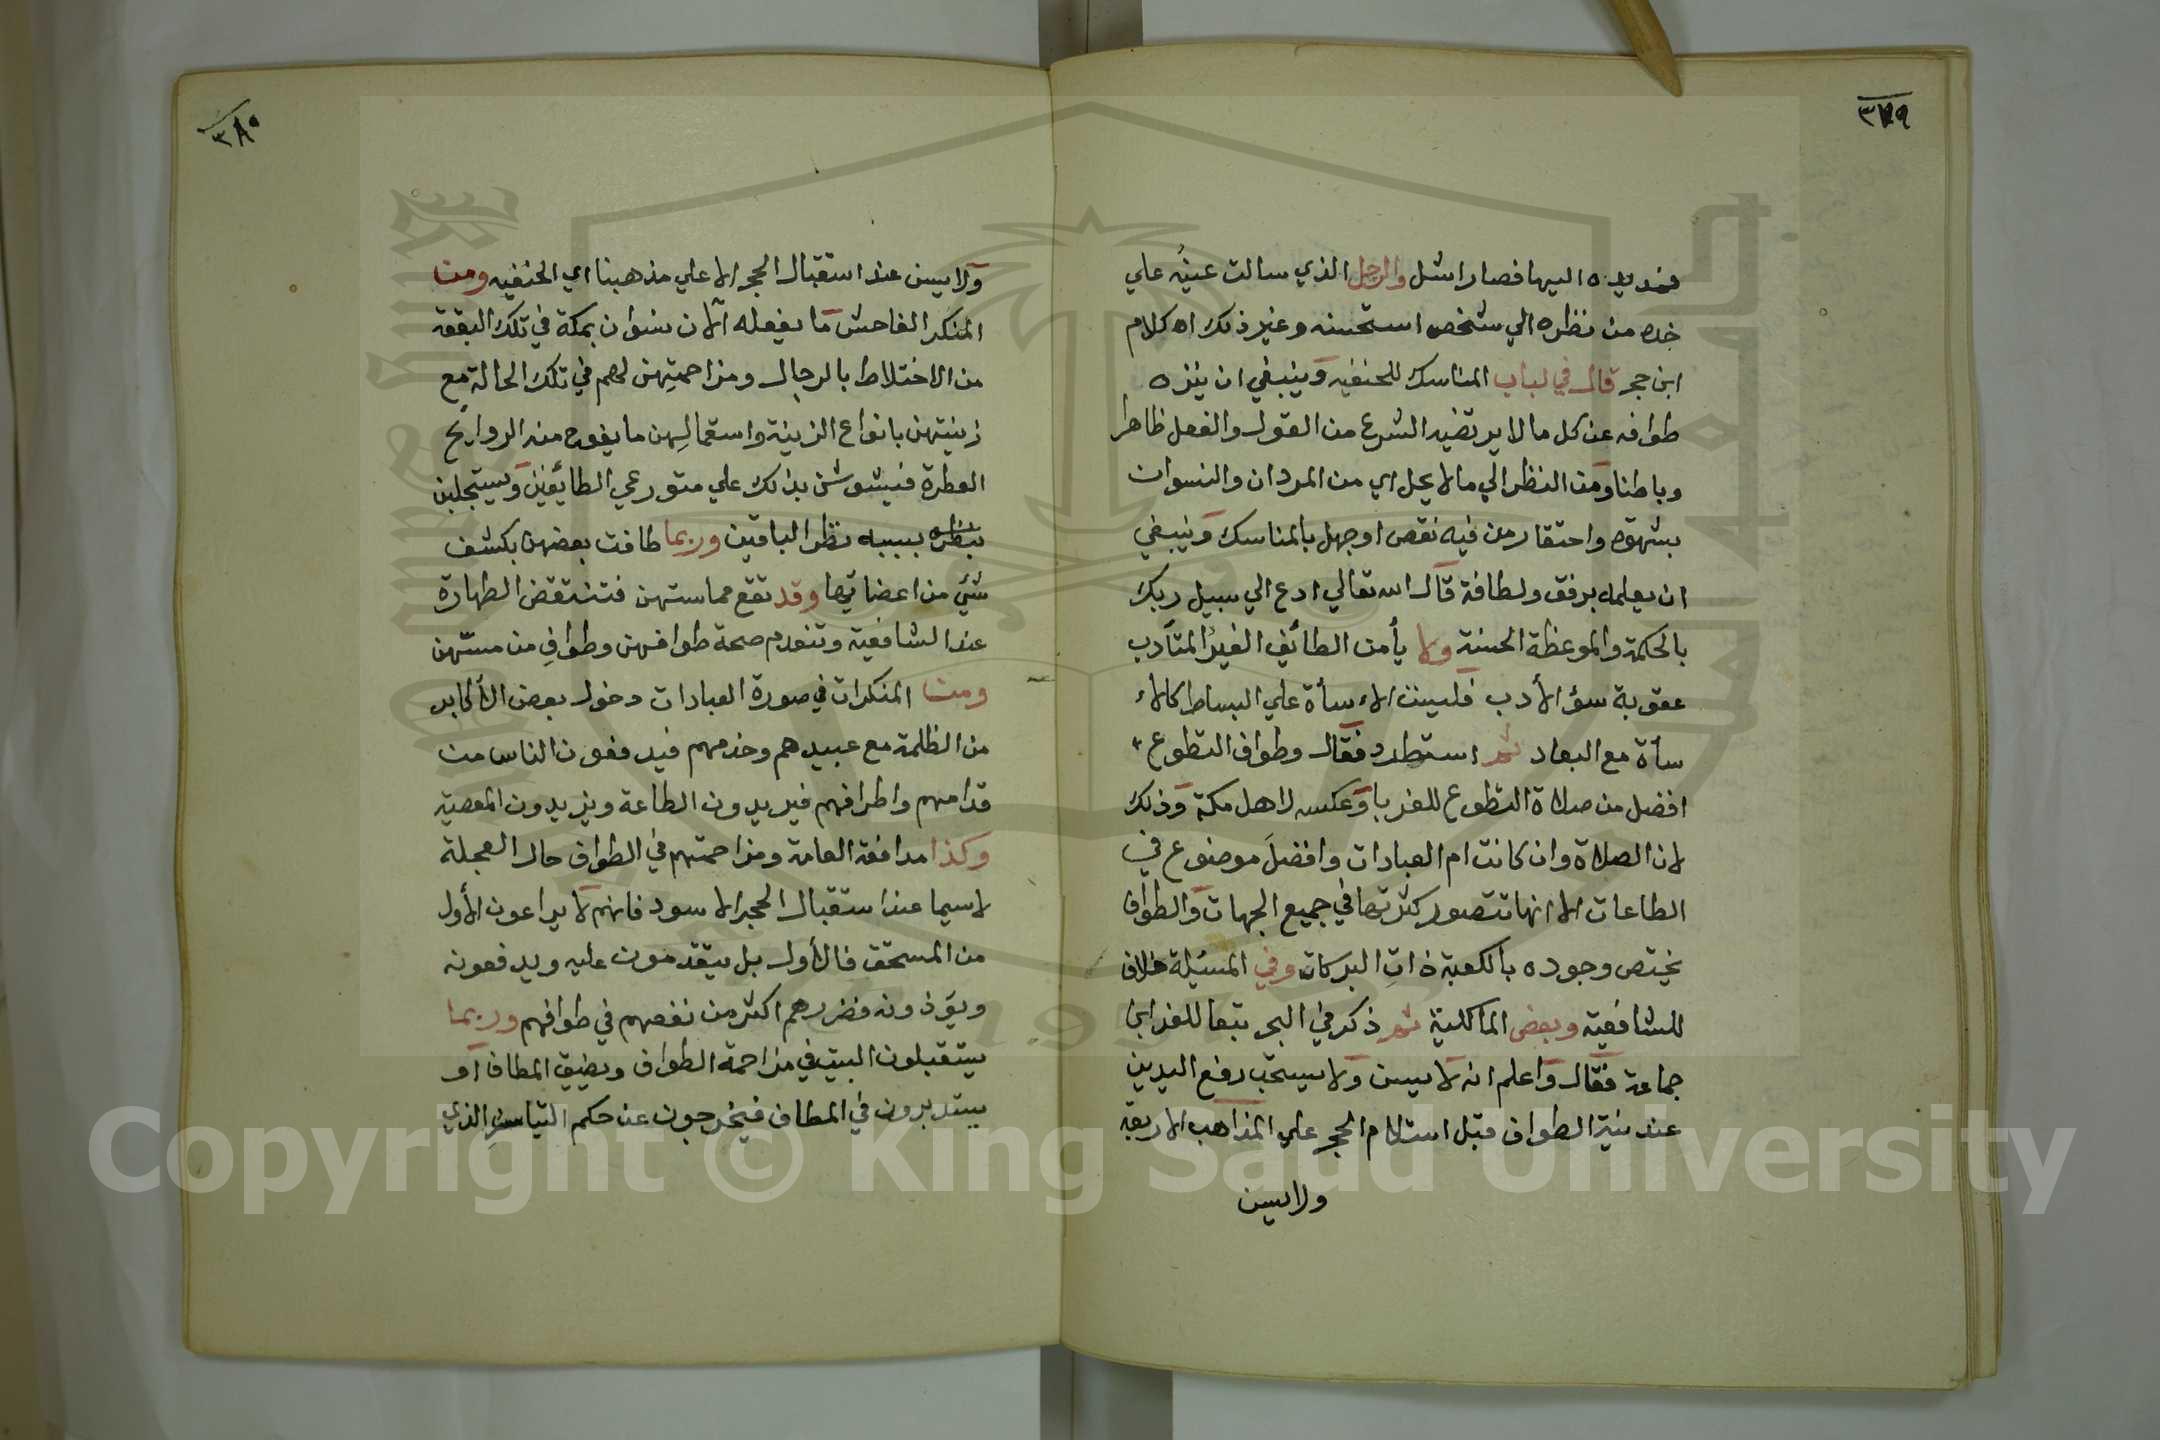 ٣٧٩
فمد يده اليها فصار اشل والرجل الذي سالت عينه علي
خده من نظره الي شخص استحسنه وغير ذلك اه كلام
ابن حجر قال في لباب المناسك للحنفيه وينبغي ان ينزه
طوافه عن كل ما لا يرتضيه الشرع من القول والفعل ظاهرا
وباطنا ومن النظر الي ما لا يحل اي من المردان والنسوان
بشهوة واحتقار من فيه نقص او جهل بالمناسك وينبغي
ان يعلمه برفق ولطافة قال الله تعالي ادع الي سبيل ربك
بالحكمة والموعظة الحسنة ولا يأمن الطائف الغير المتأدب
عقوبة سؤ الأدب فليست الاء سأة علي البساط كالاء
سأة مع البعاد ثم استطرد فقال وطواف التطوع
افضل من صلاة التطوع للغربا وعكسه لاهل مكة وذلك
لان الصلاة وان كانت ام العبادات وافضل موضوع في
الطاعات الا انها تتصور كثرتها في جميع الجهات والطواف
يختص وجوده بالكعبة ذات البركات وفي المسئلة خلاف
للشافعية وبعض المالكلية ثم ذكر في البحر تبعا للغز ابن
جماعة فقال واعلم انه لا يسن ولا يستحب رفع اليدين
عند نية الطواف قبل استلام الحجر علي المذاهب الاربعة
ولا يسن
٣٨٠
ولا يسن عند استقبال الحجر الا علي مذهبنا اي الحنفيه ومن
المنكر الفاحش ما يفعله الآن نسوان بمكة في تلك البقعة
من الاختلاط بالرجال ومزاحمتهن لهم في تلك الحالة مع
زينتهن بانواع الزينة واستعمالهن ما يفوح منه الروايح
العطرة فيشوشن بذلك علي متورعي الطائفين ويستجلبن
بسببه نظر الباقين وربما طافت بعضهن بكشف
شئي من اعضائها وقد تقع مماستهن فتنتقض الطهارة
عند الشافعية وتنعدم صحة طوافهن وطواف من مسهن
ومن المنكرات في صورة العبادات دخول بعض الأكابر
من الظلمة مع عبيدهم وخدمهم فيدفعون الناس من
قدامهم واطرافهم فيريدون الطاعة ويزيدون المعصية
وكذا مدافعة العامة ومزاحمتهم في الطواف حال العجلة
لا سيما عند استقبال الحجر الاسود فانهم لا يراعون الأول
من المستحق فالأول بل يتقدمون عليه ويدفعونه
ويؤذونه فضررهم اكثر من نفعهم في طوافهم وربما
يستقبلون البيت في مزاحمة الطواف وبضيق المطاف او
يستدبرون في المطاف فيخرجون عن حكم التياسر الذي
Copyright © King Saud University